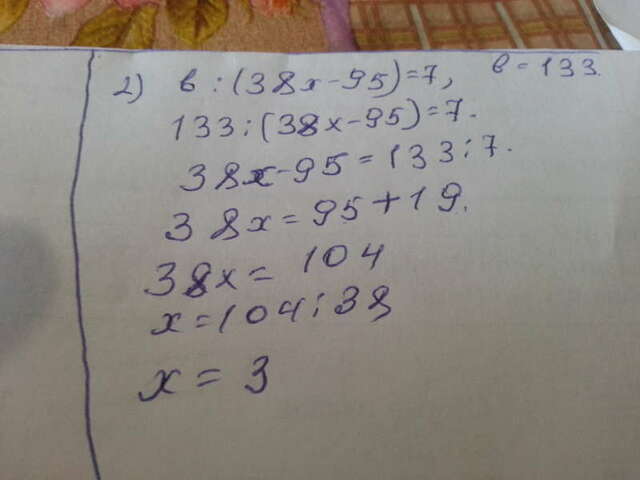 2) в : (38х-95)=7, в = 133.
133 : (38х-95)=7.
38х-95=133:7.
38х=95+19.
38х= 104
х=104:38
х = 3